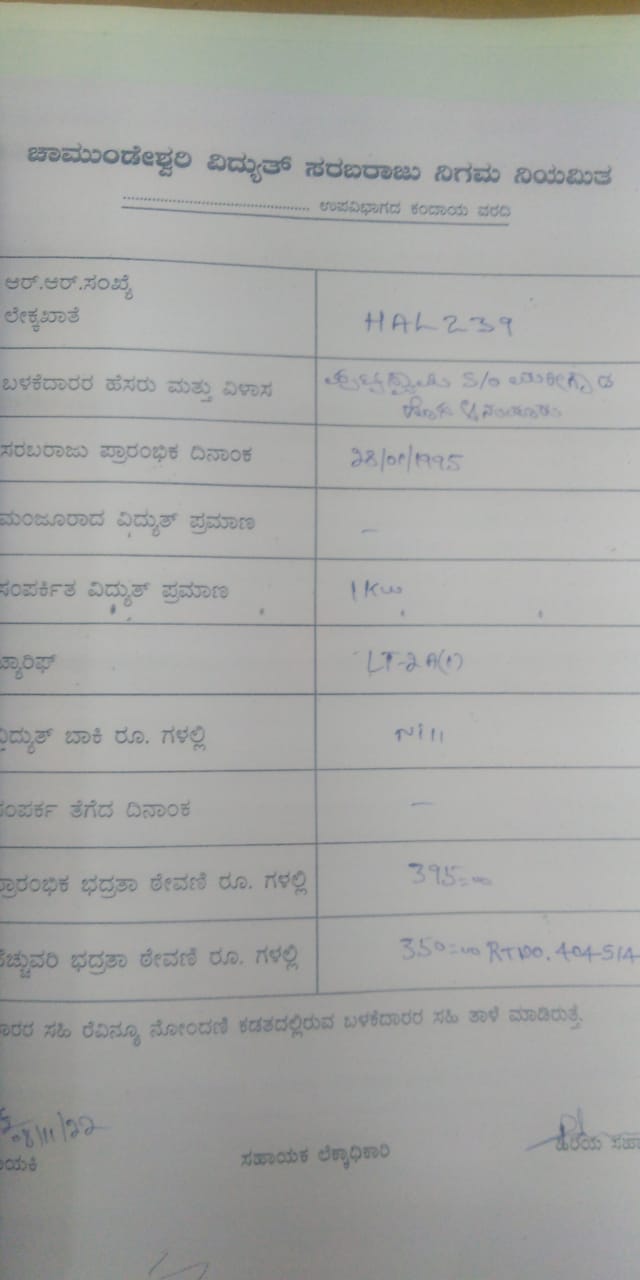 ಚಾಮುಂಡೇಶ್ವರಿ ವಿದ್ಯುತ್ ಸರಬರಾಜು ನಿಗಮ ನಿಯಮಿತ
............................................ ಉಪವಿಭಾಗದ ಕಂದಾಯ ವರದಿ
ಆರ್.ಆರ್.ಸಂಖ್ಯೆ
ಲೇಕ್ಕಖಾತೆ HAL 239
ಬಳಕೆದಾರರ ಹೆಸರು ಮತ್ತು ವಿಳಾಸ S/o
ಸರಬರಾಜು ಪ್ರಾರಂಭಿಕ ದಿನಾಂಕ 28/01/1995
ಮಂಜೂರಾದ ವಿದ್ಯುತ್ ಪ್ರಮಾಣ –
ಸಂಪರ್ಕಿತ ವಿದ್ಯುತ್ ಪ್ರಮಾಣ 1 KW
ಟ್ಯಾರಿಫ್ LT-2A(1)
ವಿದ್ಯುತ್ ಬಾಕಿ ರೂ. ಗಳಲ್ಲಿ Nill
ಸಂಪರ್ಕ ತೆಗೆದ ದಿನಾಂಕ –
ಪ್ರಾರಂಭಿಕ ಭದ್ರತಾ ಠೇವಣಿ ರೂ. ಗಳಲ್ಲಿ 395=00
ಹೆಚ್ಚುವರಿ ಭದ್ರತಾ ಠೇವಣಿ ರೂ. ಗಳಲ್ಲಿ 350=00 RTNO. 404514
ದಾರರ ಸಹಿ ರೆವಿನ್ಯೂ ನೋಂದಣಿ ಕಡತದಲ್ಲಿರುವ ಬಳಕೆದಾರರ ಸಹಿ ತಾಳೆ ಮಾಡಿರುತ್ತೆ.
08/11/22
ಾಯಕಿ ಸಹಾಯಕ ಲೆಕ್ಕಾಧಿಕಾರಿ ಹಿರಿಯ ಸಹಾ